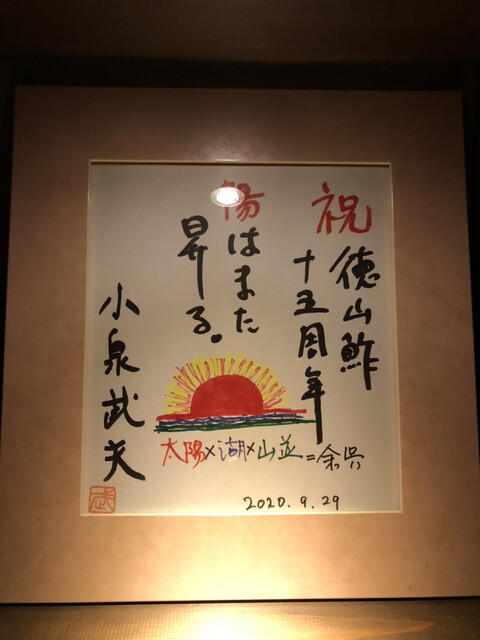 祝
徳山鮓
十五周年
陽はまた
昇る。
小泉武夫
太陽×湖×山並=余呉
2020.9.29
武